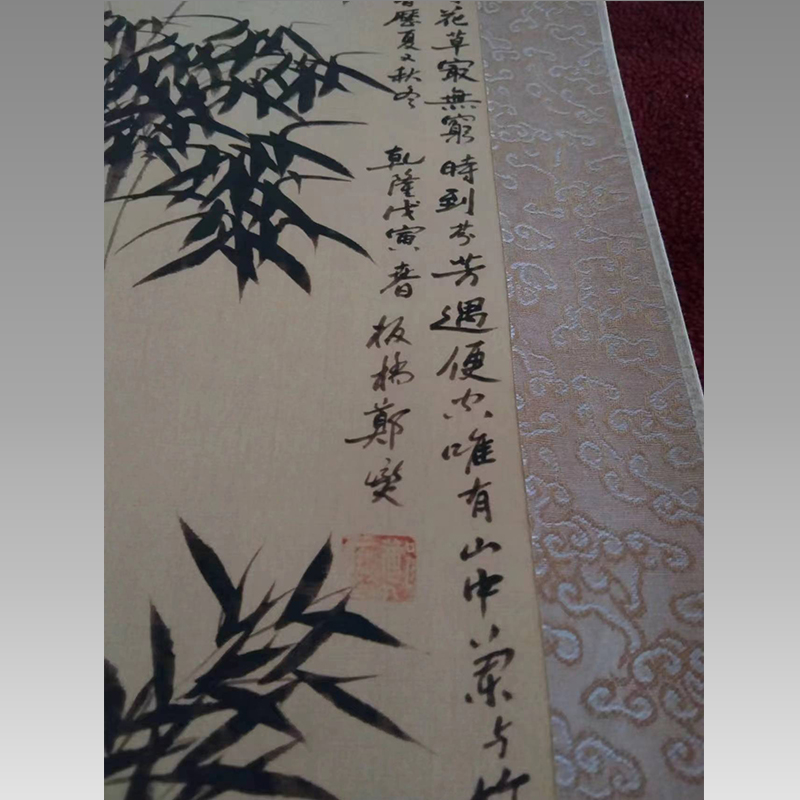 花草最無窮時到芬芳遇便空唯有山中蘭与竹
春歷夏又秋冬 乾隆戊寅春 板橋鄭燮